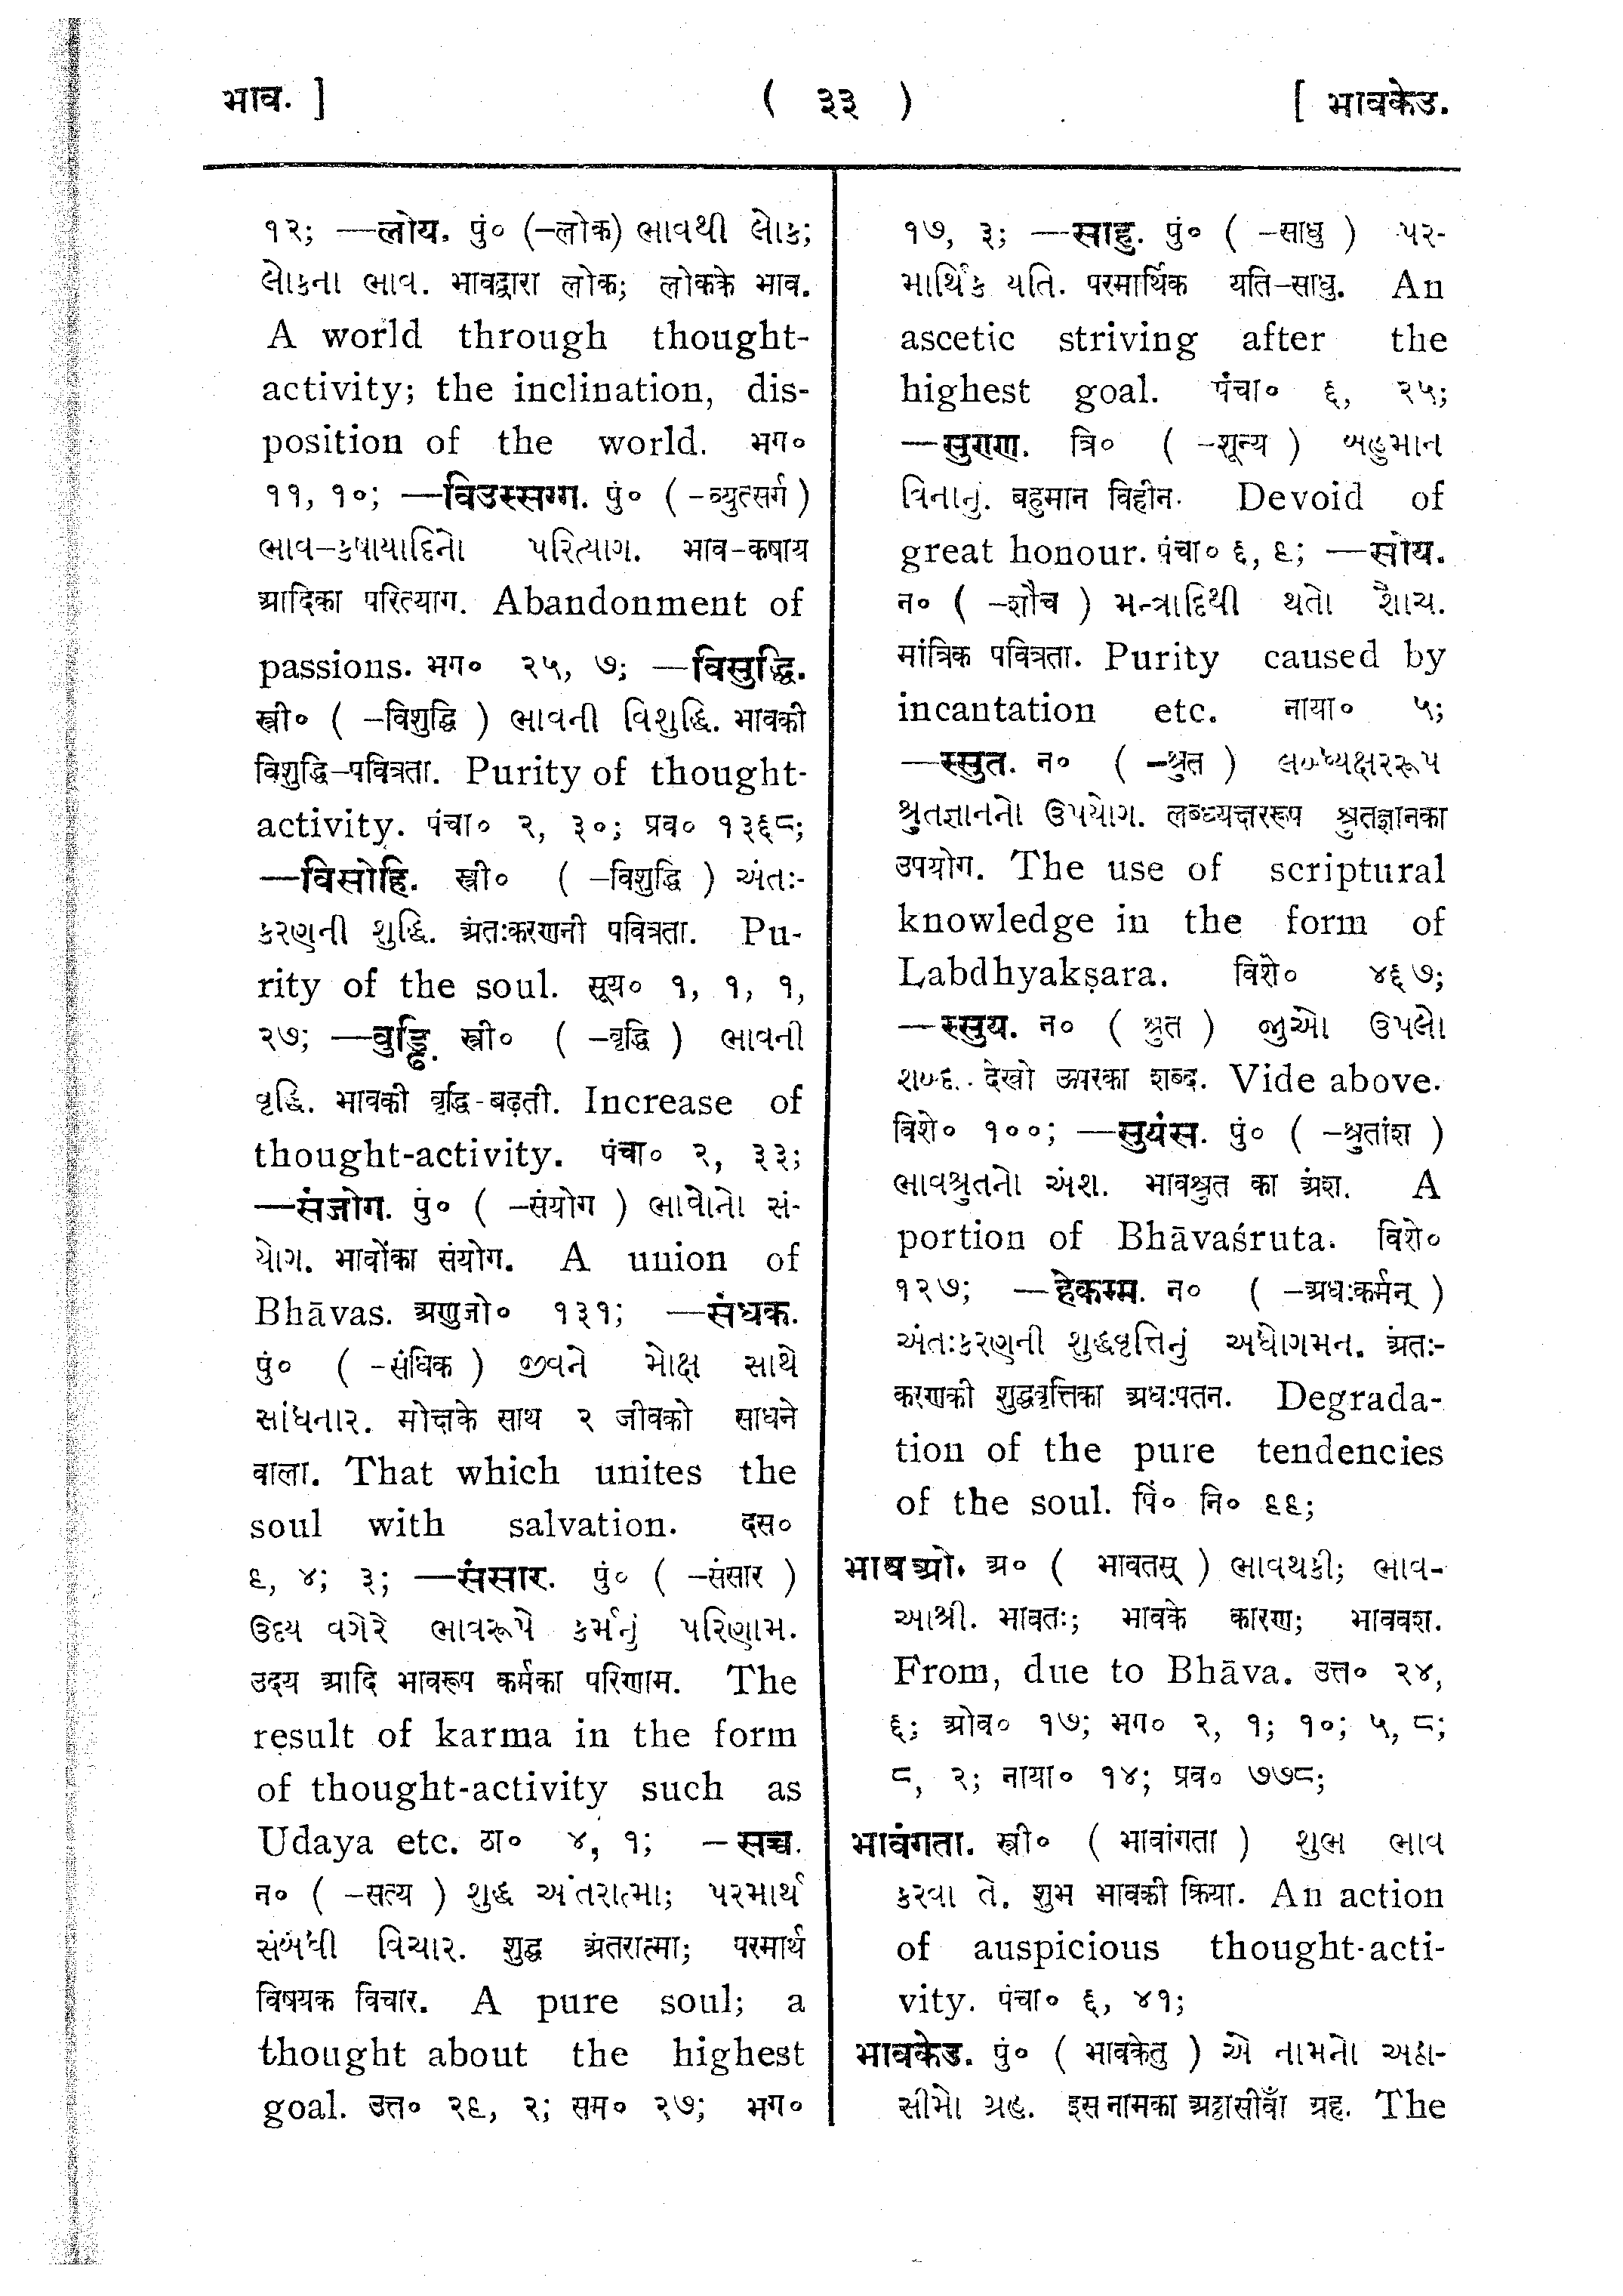 भाव. ]
( ३३ )
[ भावकेउ.
१२; —लोय. पुं० (–लोक) ભાવથી લોક;
લોકના ભાવ. भावद्वारा लोक; लोकके भाव.
A world through thought-
activity; the inclination, dis-
position of the world. भग०
११, १०; —विउस्सग्ग. पुं० (–व्युत्सर्ग)
ભાવ–કષાયાદિનો પરિત્યાગ. भाव-कषाय
आदिका परित्याग. Abandonment of
passions. भग० २५, ७; —विसुद्धि.
स्त्री० ( –विशुद्धि ) ભાવની વિશુદ્ધિ. भावकी
विशुद्धि–पवित्रता. Purity of thought-
activity. पंचा० २, ३०; प्रव० १३६८;
—विसोहि. स्त्री० ( –विशुद्धि ) અંતઃ-
કરણની શુદ્ધિ. अंतःकरणनी पवित्रता. Pu-
rity of the soul. सूय० १, १, १,
२७; —वुड्ढि. स्त्री० ( –वृद्धि ) ભાવની
વૃદ્ધિ. भावकी वृद्धि-बढ़ती. Increase of
thought-activity. पंचा० २, ३३;
—संजोग. पुं० ( –संयोग ) ભાવોનો સં-
યોગ. भावोंका संयोग. A union of
Bhāvas. अणुजो० १३१; —संधक.
पुं० ( -संधिक ) જીવને મોક્ષ સાથે
સાંધનાર. मोक्षके साथ २ जीवको साधने
वाला. That which unites the
soul with salvation. दस०
९, ४; ३; —संसार. पुं० ( –संसार )
ઉદય વગેરે ભાવરૂપે કર્મનું પરિણામ.
उदय आदि भावरूप कर्मका परिणाम. The
result of karma in the form
of thought-activity such as
Udaya etc. ठा० ४, १; –सच्च.
न० ( –सत्य ) શુદ્ધ અંતરાત્મા; પરમાર્થ
સંબંધી વિચાર. शुद्ध अंतरात्मा; परमार्थ
विषयक विचार. A pure soul; a
thought about the highest
goal. उत्त० २९, २; सम० २७; भग०
१७, ३; —साहु. पुं० ( –साधु ) પર-
માર્થિક યતિ. परमार्थिक यति–साधु. An
ascetic striving after the
highest goal. पंचा० ६, २५;
—सुराण. त्रि० ( –शून्य ) બહુમાન
વિનાનું. बहुमान विहीन. Devoid of
great honour. पंचा० ६, ९; —सोय.
न० ( –शौच ) મન્ત્રાદિથી થતો શૌચ.
मांत्रिक पवित्रता. Purity caused by
incantation etc. नाया० ५;
—स्सुत. न० ( –श्रुत ) લબ્ધ્યક્ષરરૂપ
શ્રુતજ્ઞાનનો ઉપયોગ. लब्ध्यक्षररूप श्रुतज्ञानका
उपयोग. The use of scriptural
knowledge in the form of
Labdhyakṣara. विशे० ४६७;
—स्सुय. न० ( श्रुत ) જુઓ ઉપલો
શબ્દ. देखो ऊपरका शब्द. Vide above.
विशे० १००; —सुयंस. पुं० ( –श्रुतांश )
ભાવશ્રુતનો અંશ. भावश्रुत का अंश. A
portion of Bhāvaśruta. विशे०
१२७; —हेकम्म. न० ( –अधःकर्मन् )
અંતઃકરણની શુદ્ધવૃત્તિનું અધોગમન. अंतः-
करणकी शुद्धवृत्तिका अधःपतन. Degrada-
tion of the pure tendencies
of the soul. पिं० नि० ९९;
भावओ. अ० ( भावतस् ) ભાવથકી; ભાવ-
આશ્રી. भावतः; भावके कारण; भाववश.
From, due to Bhāva. उत्त० २४,
६; ओव० १७; भग० २, १; १०; ५, ८;
८, २; नाया० १४; प्रव० ७७८;
भावंगता. स्त्री० ( भावांगता ) શુભ ભાવ
કરવા તે. शुभ भावकी क्रिया. An action
of auspicious thought-acti-
vity. पंचा० ६, ४१;
भावकेउ. पुं० ( भावकेतु ) એ નામનો અઠા-
સીમો ગ્રહ. इस नामका अट्ठासीवाँ ग्रह. The